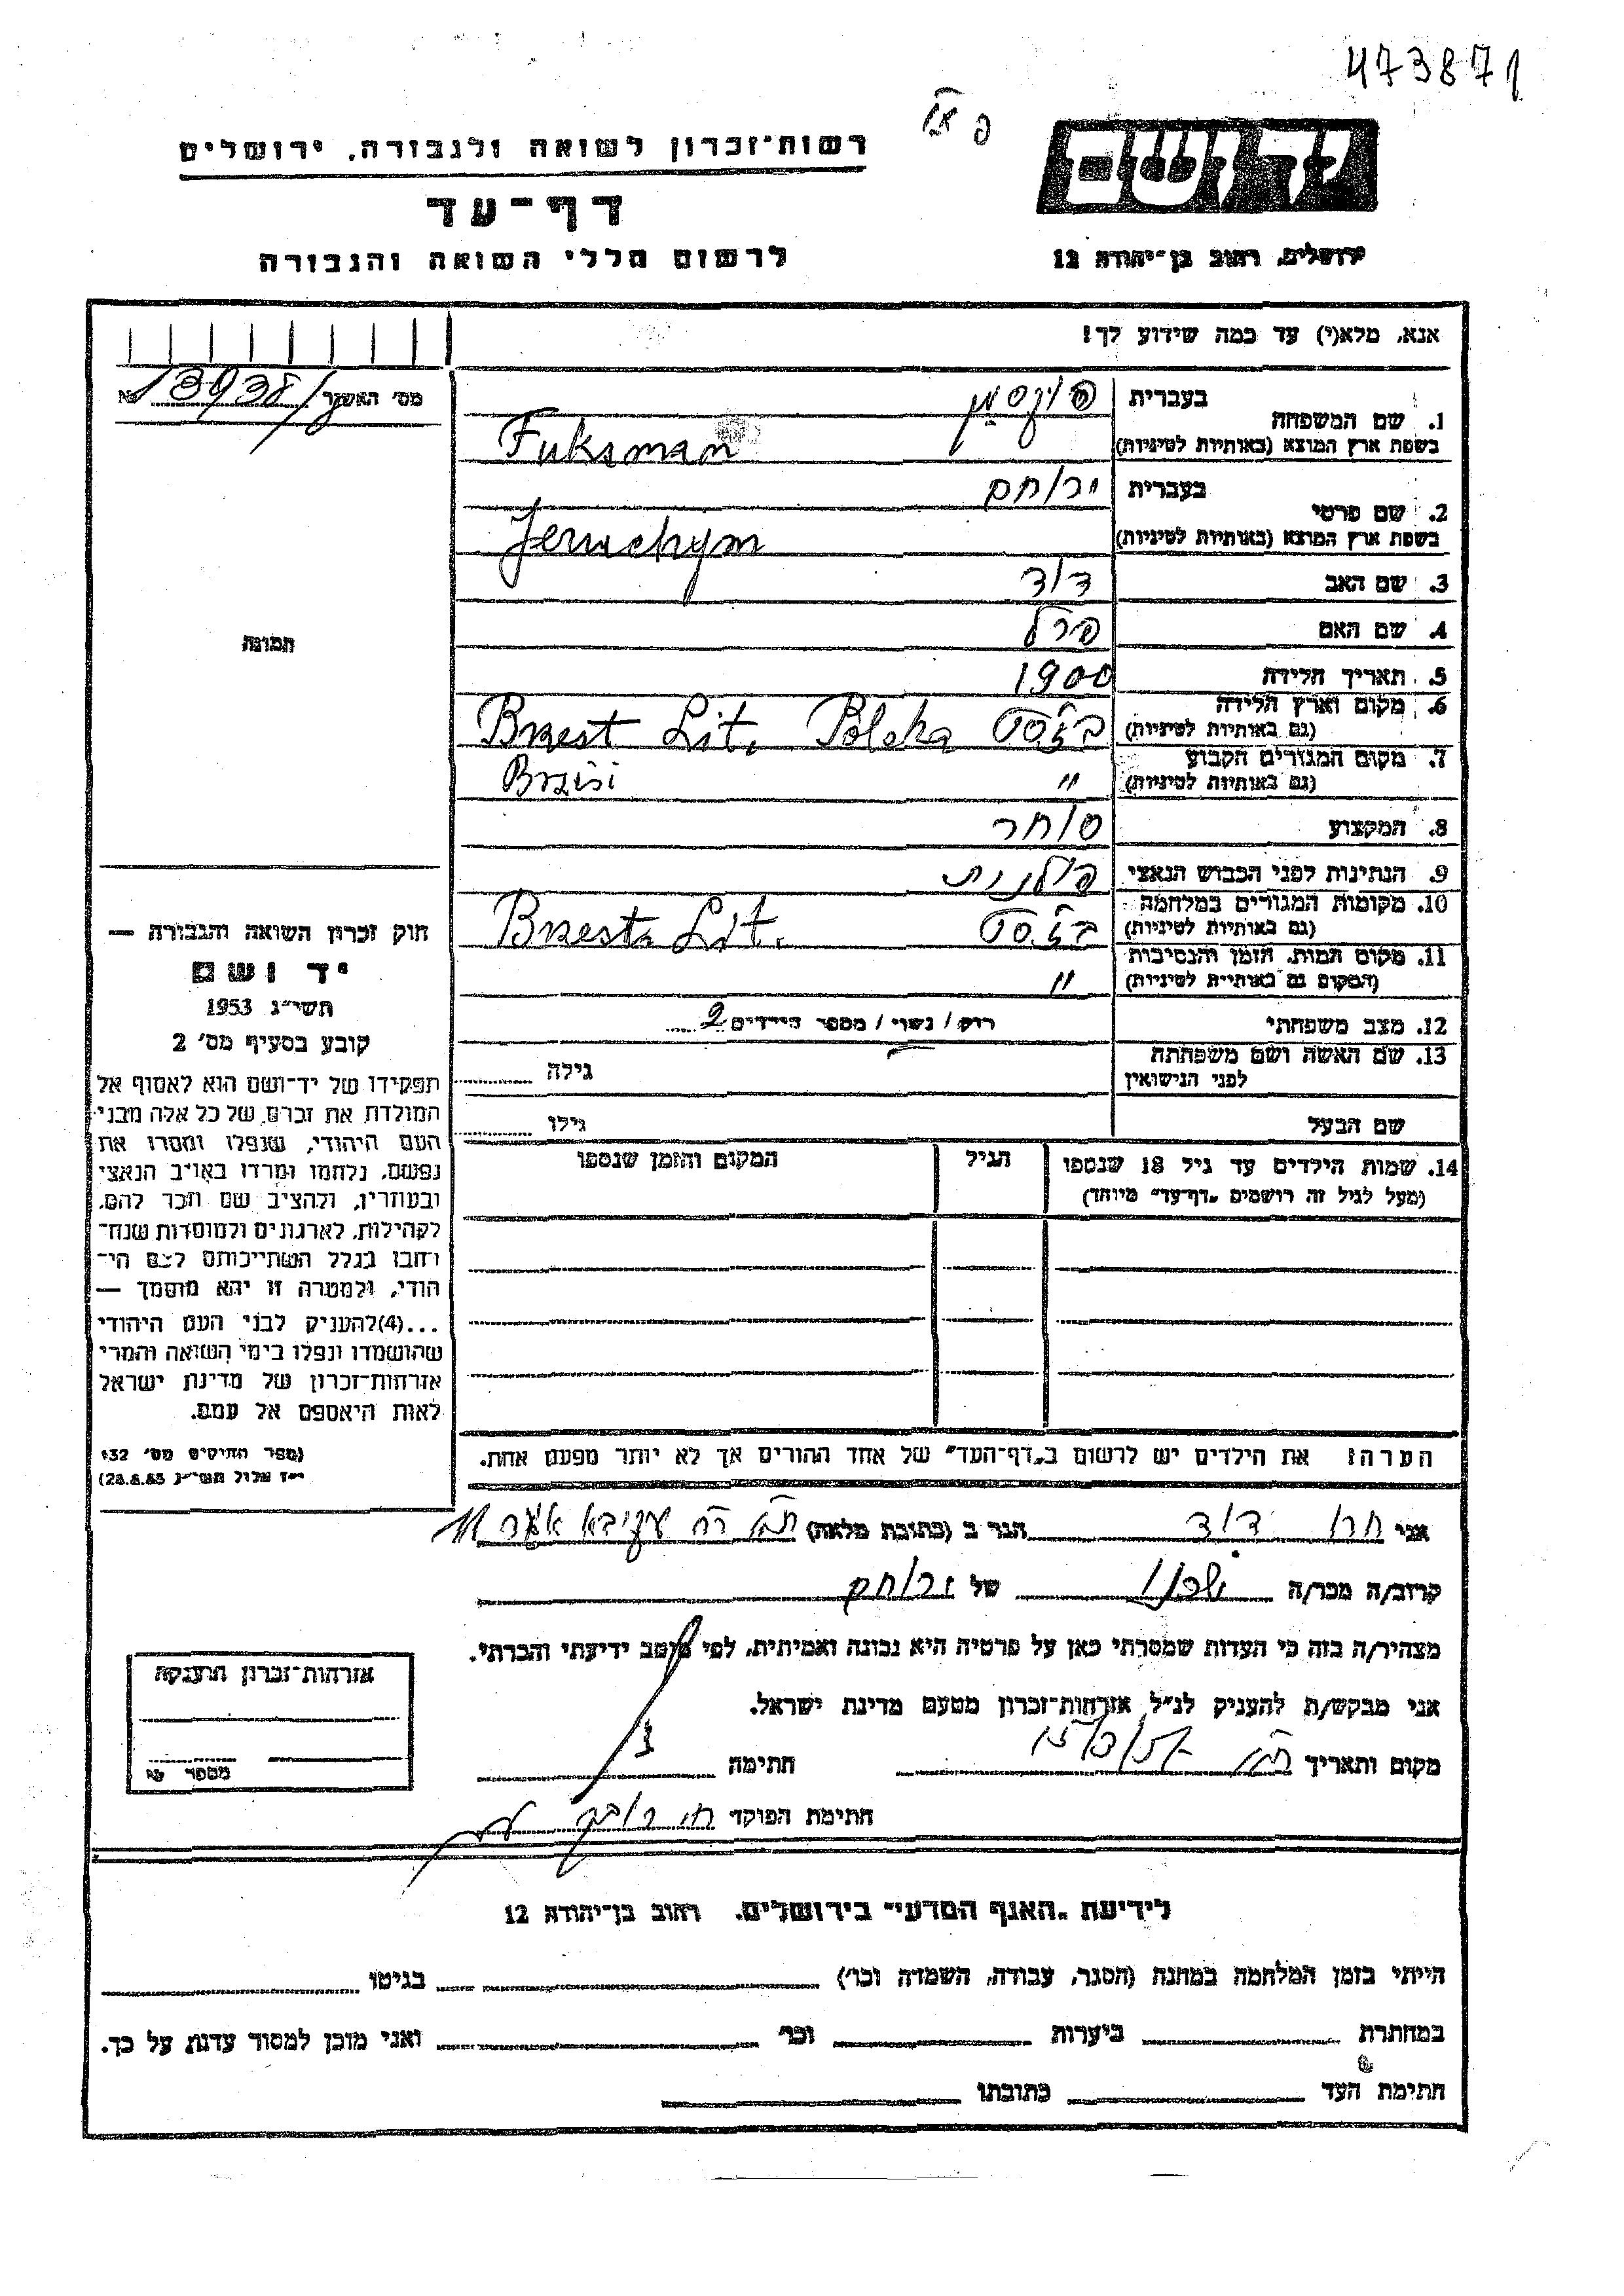 473871
רשות־זכרון לשואה ולגבורה, ירושלים
דף־עד
לרשום חללי השואה והגבורה
יד ושם
ירושלים, רחוב בן־יהודה 12
אנא, מלא(י) עד כמה שידוע לך!
מס' האשקר
1. שם המשפחה
בעברית פוקסמן
בשפת ארץ המוצא (באותיות לטיניות) Fuksman
2. שם פרטי
בעברית ירוחם
בשפת ארץ המוצא (באותיות לטיניות) Jeruchym
3. שם האב דוד
4. שם האם פרל
5. תאריך הלידה 1900
6. מקום וארץ הלידה
(גם באותיות לטיניות) בריסק Brzest Lit. Polska
7. מקום המגורים הקבוע
(גם באותיות לטיניות) "
8. המקצוע סוחר
9. הנתינות לפני הכבוש הנאצי פולנית
10. מקומות המגורים במלחמה
(גם באותיות לטיניות) בריסק Brzest Lit.
11. מקום המות, הזמן והנסיבות
(המקום גם באותיות לטיניות) "
12. מצב משפחתי רוק / נשוי / מספר הילדים 2
13. שם האשה ושם משפחתה
לפני הנישואין גילה
שם הבעל גילו
14. שמות הילדים עד גיל 18 שנספו
(מעל לגיל זה רושמים "דף־עד" מיוחד)
הגיל
המקום והזמן שנספו
הערה: את הילדים יש לרשום ב"דף־העד" של אחד ההורים אך לא יותר מפעם אחת.
תמונה
חוק זכרון השואה והגבורה —
יד ושם
תשי"ג 1953
קובע בסעיף מס' 2
תפקידו של יד־ושם הוא לאסוף אל
המולדת את זכרם של כל אלה מבני
העם היהודי, שנפלו ומסרו את
נפשם, נלחמו ומרדו באויב הנאצי
ובעוזריו, ולהציב שם וזכר להם,
לקהילות, לארגונים ולמוסדות שנח־
רבו בגלל השתייכותם לעם הי־
הודי, ולמטרה זו יהא מוסמך —
...(4)להעניק לבני העם היהודי
שהושמדו ונפלו בימי השואה והמרי
אזרחות־זכרון של מדינת ישראל
לאות היאספם אל עמם.
(ספר החוקים מס' 132
י"ז אלול תשי"ג
אני דוד הגר ב (כתובת מלאה)
קרוב/ה מכר/ה שכנו של ירוחם
מצהיר/ה בזה כי העדות שמסרתי כאן על פרטיה היא נכונה ואמיתית, לפי מיטב ידיעתי והכרתי.
אני מבקש/ת להעניק לנ"ל אזרחות־זכרון מטעם מדינת ישראל.
מקום ותאריך חתימה
חתימת הפוקד
אזרחות־זכרון הוענקה
מספר
לידיעת "האגף המדעי" בירושלים, רחוב בן־יהודה 12
הייתי בזמן המלחמה במחנה (הסגר, עבודה, השמדה וכו') בגיטו
במחתרת ביערות וכו' ואני מוכן למסור עדות על כך.
חתימת העד כתובתו